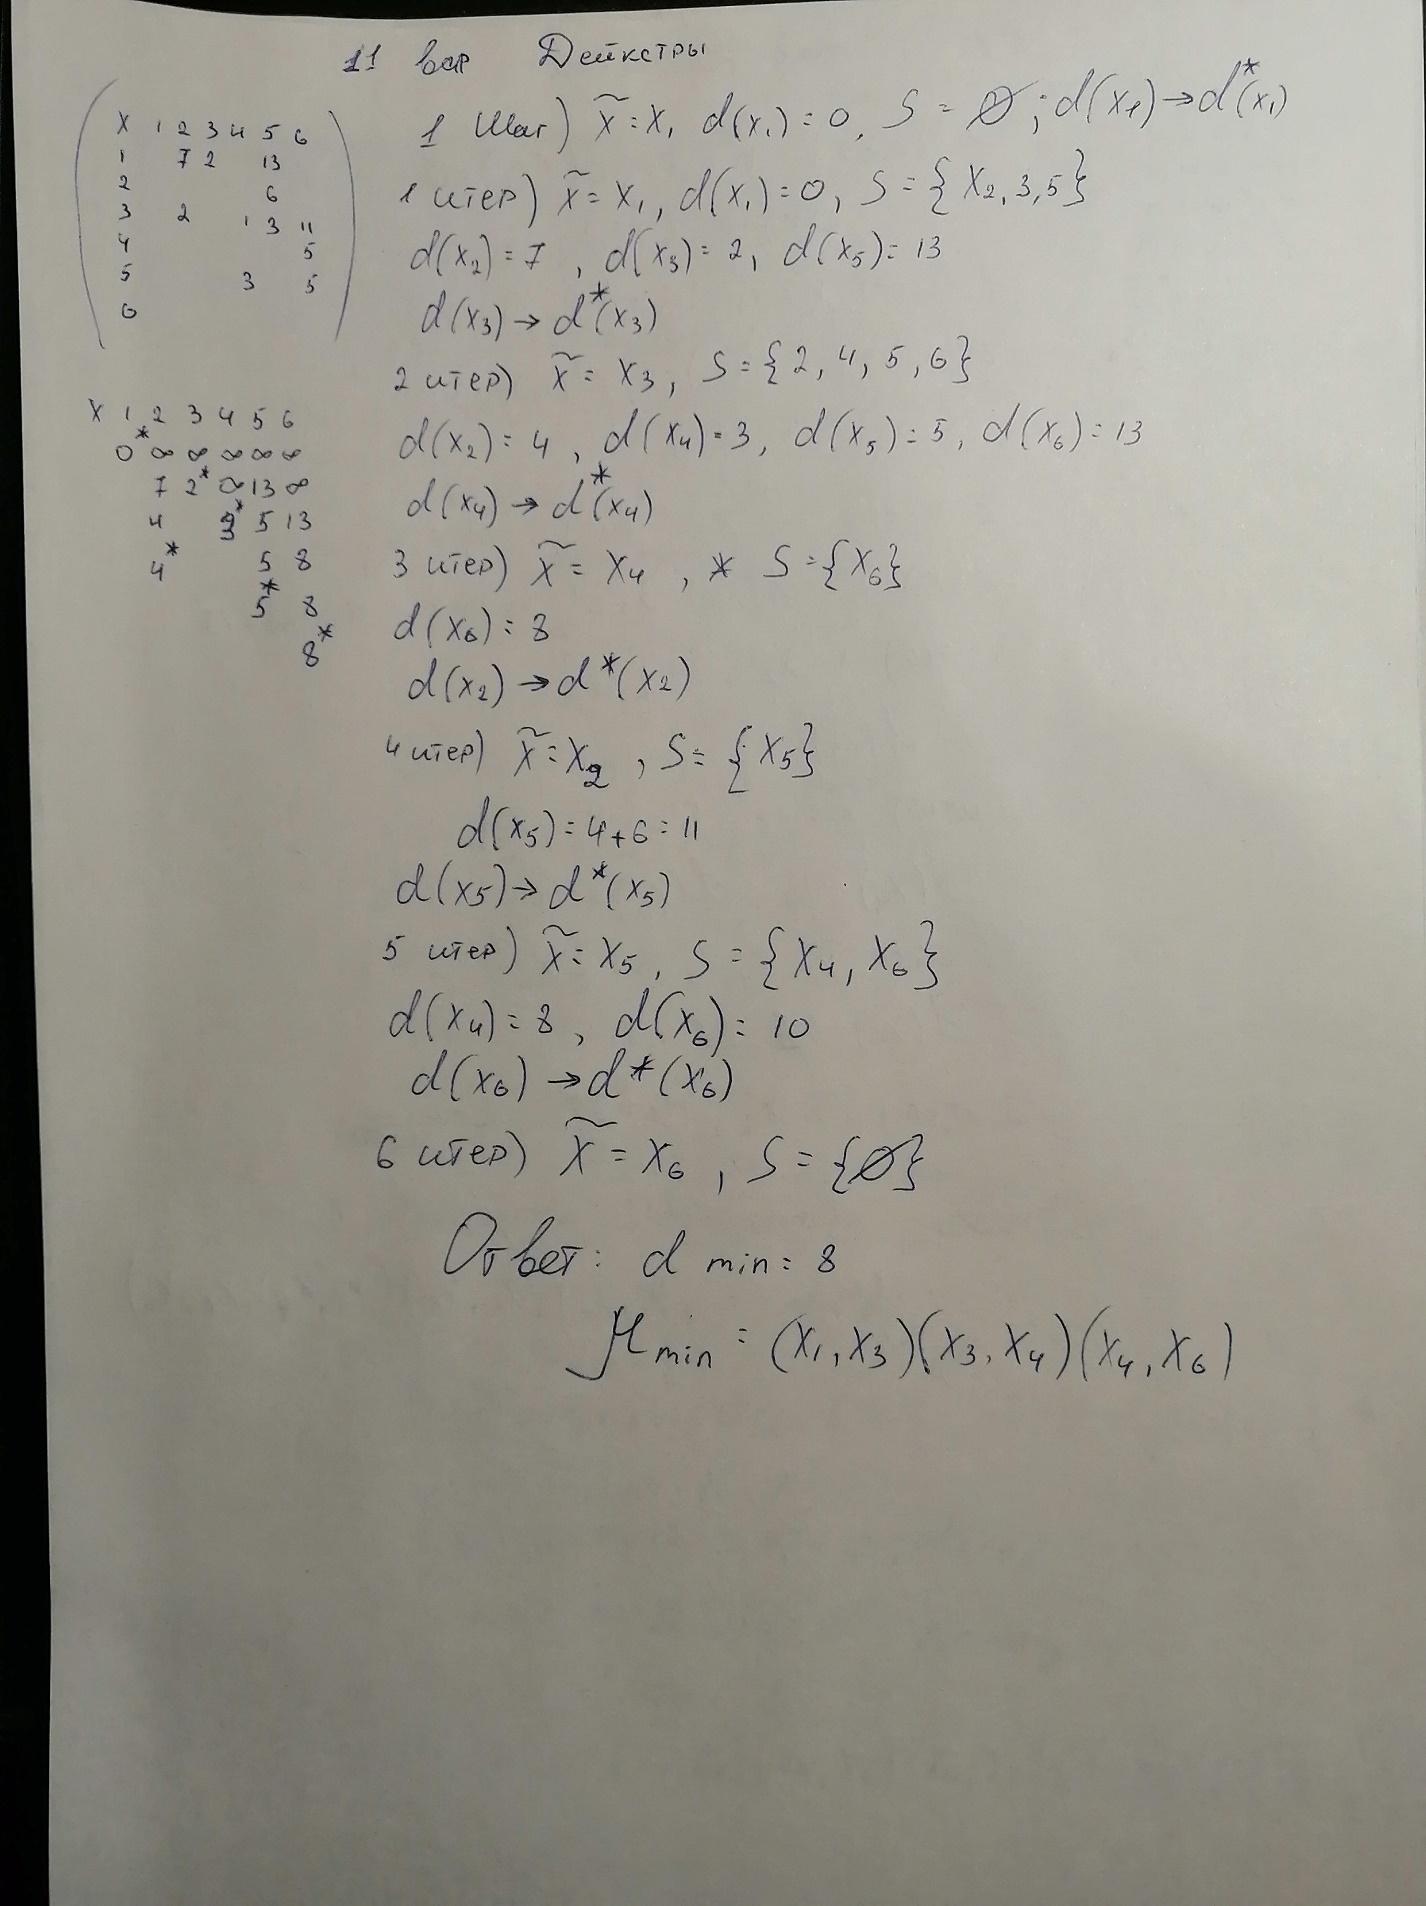 11 вар Дейкстры
X 1 2 3 4 5 6
1 7 2 13
2 6
3 2 1 3 11
4 5
5 3 5
6
X 1 2 3 4 5 6
0* ∞ ∞ ∞ ∞ ∞
7 2* ∞ 13 ∞
4 3* 5 13
4* 5 8
5* 8
8*
1 шаг) x̃ = x₁ d(x₁) = 0, S = ∅; d(x₁) → d*(x₁)
1 итер) x̃ = x₁, d(x₁) = 0, S = {x₂, 3, 5}
d(x₂) = 7, d(x₃) = 2, d(x₅) = 13
d(x₃) → d*(x₃)
2 итер) x̃ = x₃, S = {2, 4, 5, 6}
d(x₂) = 4, d(x₄) = 3, d(x₅) = 5, d(x₆) = 13
d(x₄) → d*(x₄)
3 итер) x̃ = x₄, * S = {x₆}
d(x₆) = 8
d(x₂) → d*(x₂)
4 итер) x̃ = x₂, S = {x₅}
d(x₅) = 4+6 = 11
d(x₅) → d*(x₅)
5 итер) x̃ = x₅, S = {x₄, x₆}
d(x₄) = 8, d(x₆) = 10
d(x₆) → d*(x₆)
6 итер) x̃ = x₆, S = {∅}
Ответ: d min = 8
μ min = (x₁, x₃)(x₃, x₄)(x₄, x₆)